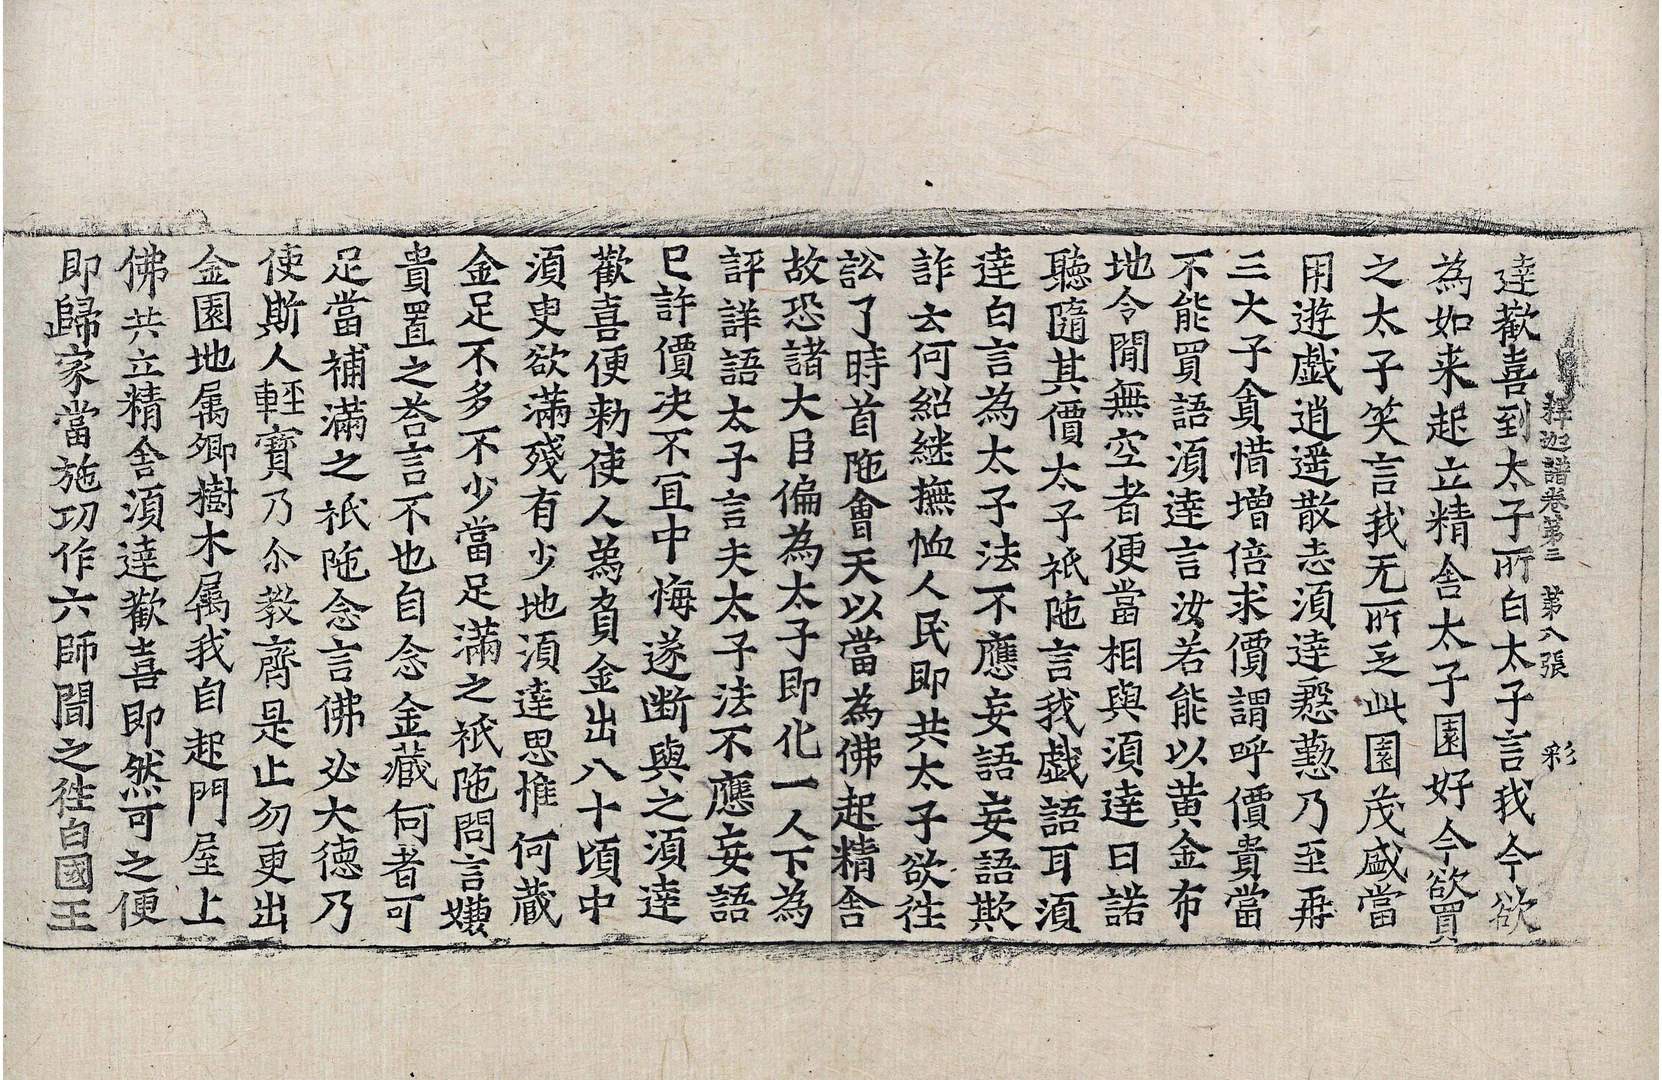 釋迦譜卷第三　第八張　彩
達歡喜到太子所白太子言我今欲
為如来起立精舍太子園好今欲買
之太子笑言我无所乏此園茂盛當
用遊戲逍遥散志湏達慇懃乃至再
三大子貪惜增倍求價謂呼價貴當
不能買語湏達言汝若能以黄金布
地令閒無空者便當相與湏達曰諾
聽隨其價太子祇陁言我戲語耳湏
達白言為太子法不應妄語妄語欺
詐云何紹継撫恤人民即共太子欲往
訟了時首陁會天以當為佛起精舍
故恐諸大臣偏為太子即化一人下為
評詳語太子言夫太子法不應妄語
已許價决不冝中悔遂断與之湏達
歡喜便勑使人象負金出八十頃中
湏臾欲滿殘有少地湏達思惟何藏
金足不多不少當足滿之祇陁問言嫌
貴置之荅言不也自念金藏何者可
足當補滿之祇陁念言佛必大德乃
使斯人輕寶乃尒教齊是止勿更出
金園地属卿樹木属我自起門屋上
佛共立精舍湏達歡喜即然可之便
即歸家當施功作六師聞之往白國王